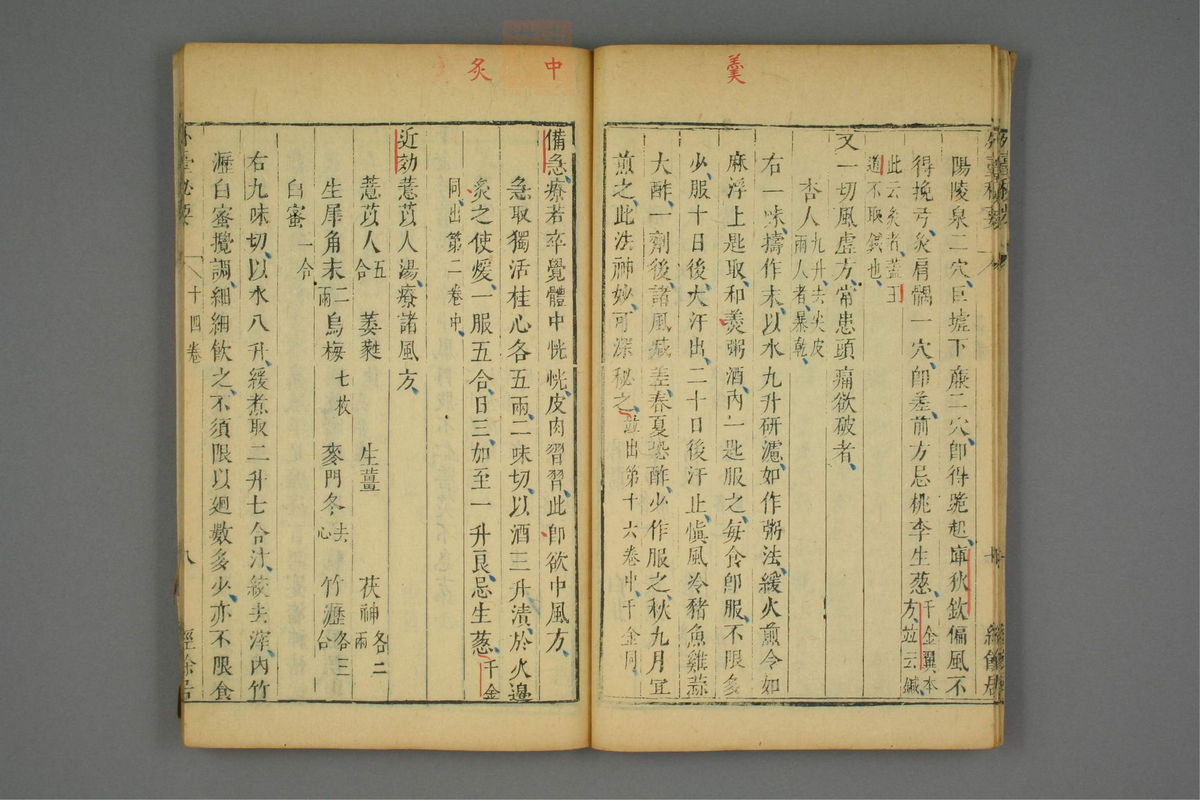 羹
陽陵泉二穴巨墟下廉二穴卽得跪起庫狄欽偏風不
得挽弓灸肩髃一穴卽差前方忌桃李生葱千金翼本方竝云鍼
此云灸者蓋王
道不取鍼也
又一切風虛方常患頭痛欲破者
杏人九升去尖皮兩人者暴乾
右一味擣作末以水九升研濾如作粥法緩火煎令如
麻浮上匙取和羹粥酒內一匙服之每食卽服不限多
少服十日後大汗出二十日後汗止愼風冷豬魚雞蒜
大酢一劑後諸風減差春夏恐酢少作服之秋九月宜
煎之此法神妙可深秘之竝出第十六卷中千金同
中
灸
備急療若卒覺體中恍恍皮肉習習此卽欲中風方
急取獨活桂心各五兩二味切以酒三升漬於火邊
炙之使煖一服五合日三加至一升良忌生葱千金
同出第二卷中
近効薏苡人湯療諸風方
薏苡人五合 萎蕤 生薑 茯神各二兩
生犀角末二兩 烏梅七枚 麥門冬去心 竹瀝各三合
白蜜一合
右九味切以水八升緩煮取二升七合汁絞去滓內竹
瀝白蜜攪調細細飲之不須限以廻數多少亦不限食
十四卷
八
經餘居